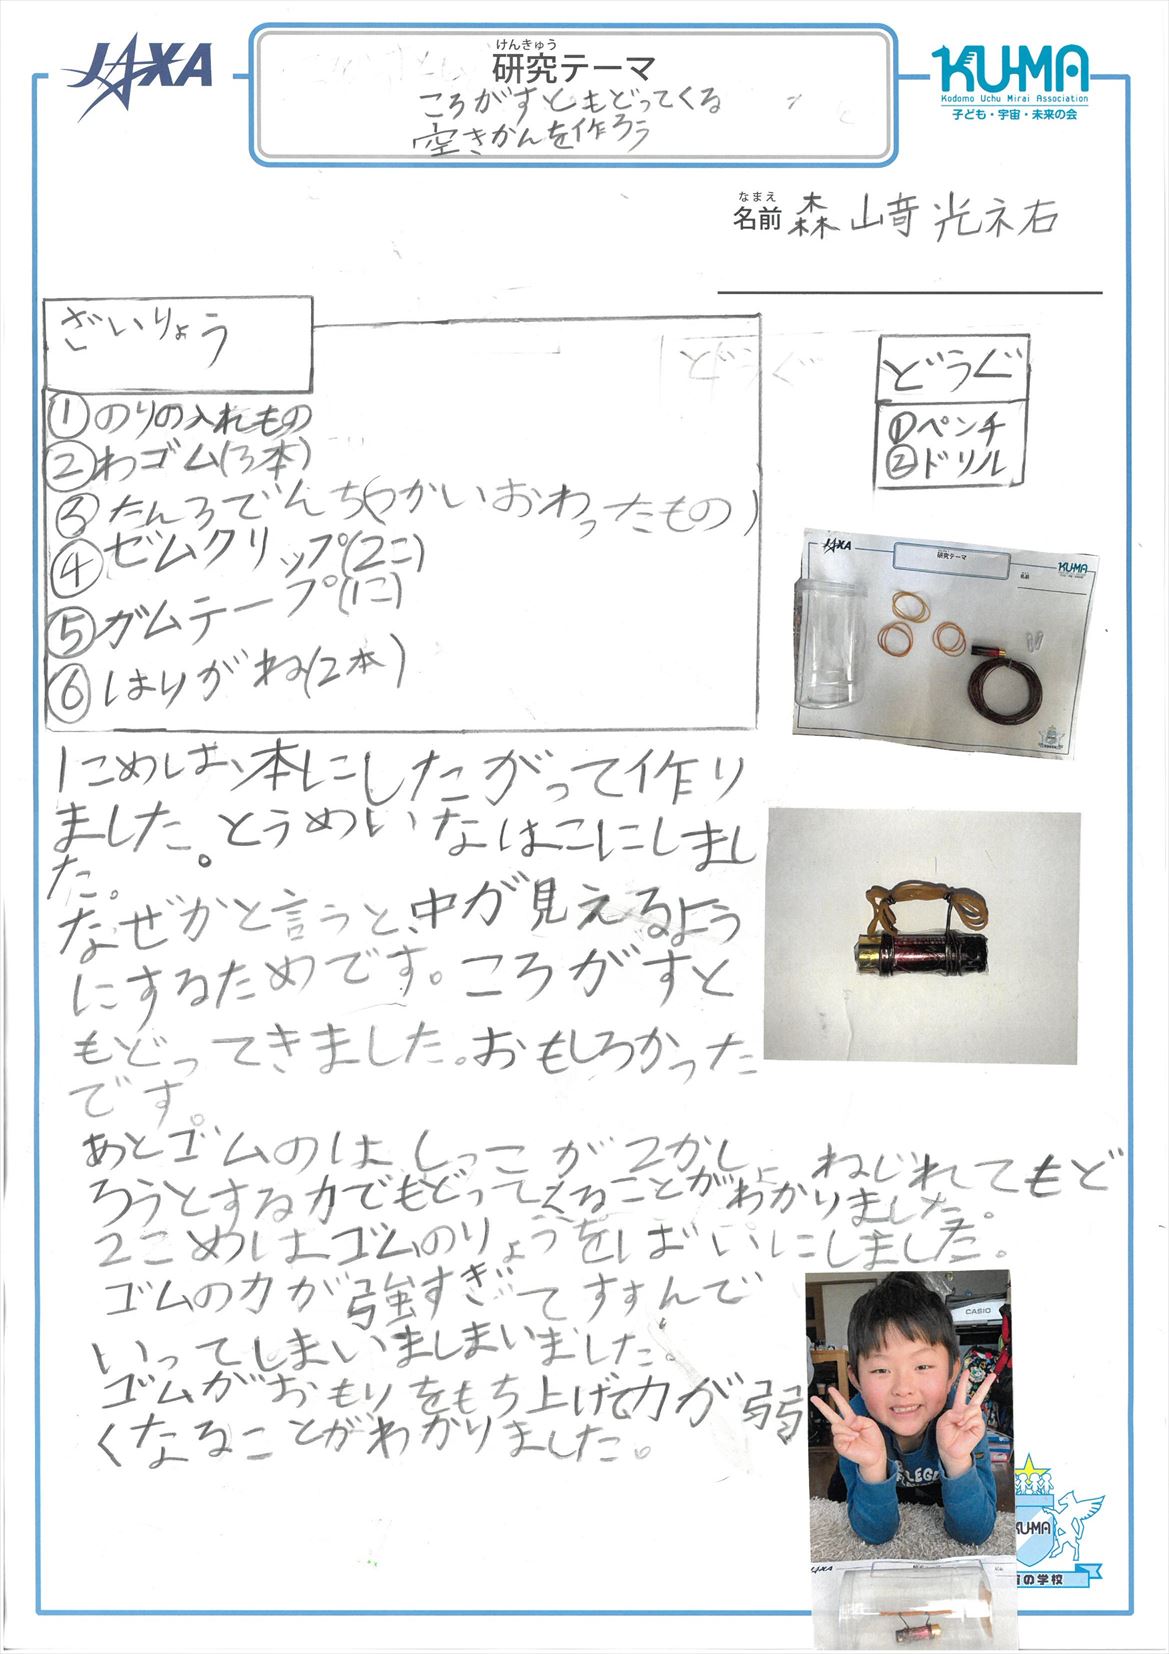 JAXA
けんきゅう
研究テーマ
ころがすともどってくる
空きかんを作ろう
KU-MA
Kodomo Uchu Mirai Association
子ども・宇宙・未来の会
なまえ
名前 森山奇光祐
ざいりょう
①のりの入れもの
②わゴム(3本)
③たんろでんち(つかいおわったもの)
④ゼムクリップ(2こ)
⑤ガムテープ(1こ)
⑥はりがね(2本)
どうぐ
①ペンチ
②ドリル
JAXA
研究テーマ
KU-MA
名前
1こめは、本にしたがって作り
ました。とうめいなはこにしまし
た。
なぜかと言うと、中が見えるよう
にするためです。ころがすと
もどってきました。おもしろかった
です。
あとゴムのはしっこが2かしょねじれてもど
ろうとする力でもどってくることがわかりました。
2こめはゴムのりょうをばいにしました。
ゴムの力が強すぎてすすんで
いってしまいましまいました。
ゴムがおもりをもち上げて力が弱
くなることがわかりました。
CASIO
KU-MA
宙の学校